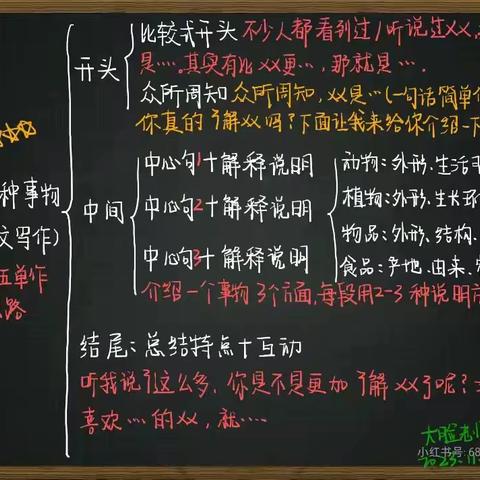 比较式开头 不少人都看到过/听说过xx,
是…。其实有比xx更…,那就是….
开头
众所周知 众所周知,xx是…(一句话简单介
你真的了解xx吗?下面让我来给你介绍一下
中心句1+解释说明
动物:外形、生活
种事物
植物:外形、生长环
中间
中心句2+解释说明
文写作)
物品:外形、结构、
五单作
中心句3+解释说明
食品:产地、由来、
路
介绍一个事物3个方面,每段用2-3种说明方
结尾:总结特点+互动
听我说了这么多,你是不是更加了解xx了呢?
喜欢…的xx,就….
大脸老师
小红书号:68
2023.11